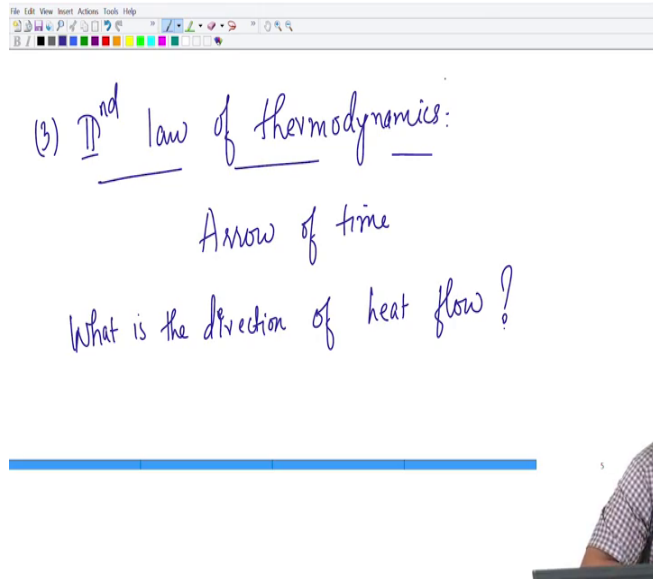 File Edit View Insert Actions Tools Help
(3) IInd law of thermodynamics:
Arrow of time
What is the direction of heat flow?
5